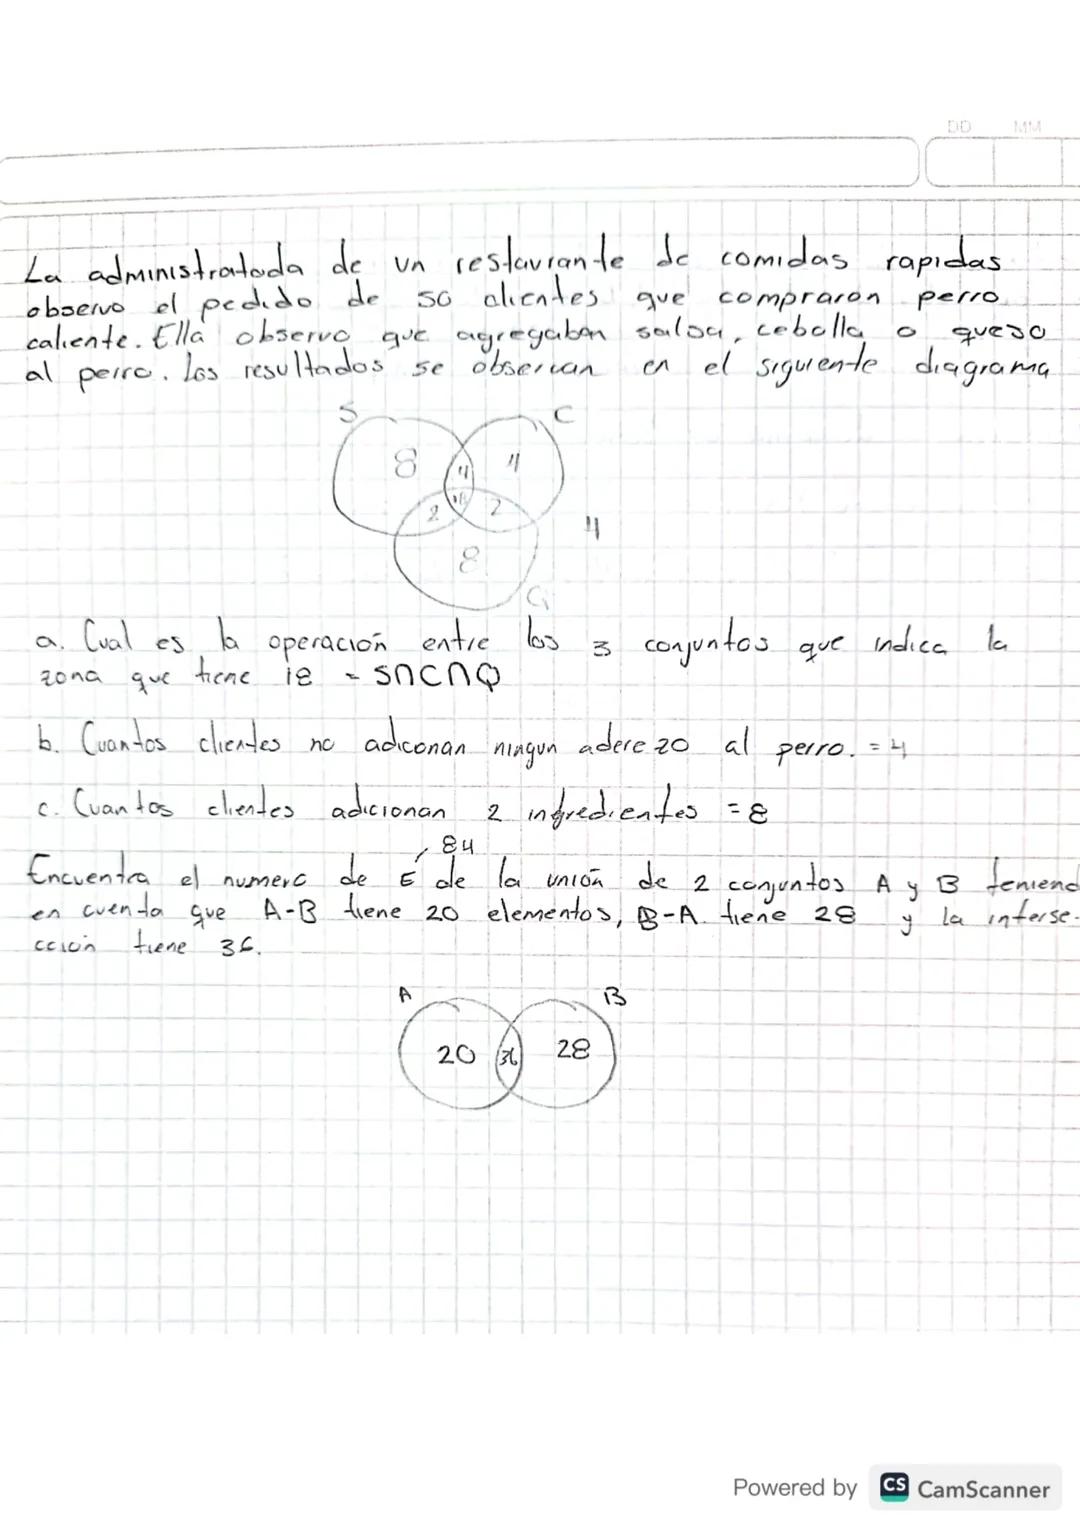 DD MM
La administratoda de un restaurante de comidas rapidas
observo el pedido de 50 clientes que compraron perro
caliente. Ella observo que agregaban salsa, cebolla o queso
al perro. Los resultados se observan en el siguiente diagrama
S C
8 4 4
18
2 2
4
8
Q
a. Cual es la operación entre los 3 conjuntos que indica la
zona que tiene 18 = S∩C∩Q
b. Cuantos clientes no adiconan ningun aderezo al perro. = 4
c. Cuantos clientes adicionan 2 ingredientes = 8
84
Encuentra el numero de E de la unión de 2 conjuntos A y B teniend
en cuenta que A-B tiene 20 elementos, B-A tiene 28 y la interse-
cción tiene 36.
A B
20 36 28
Powered by CS CamScanner